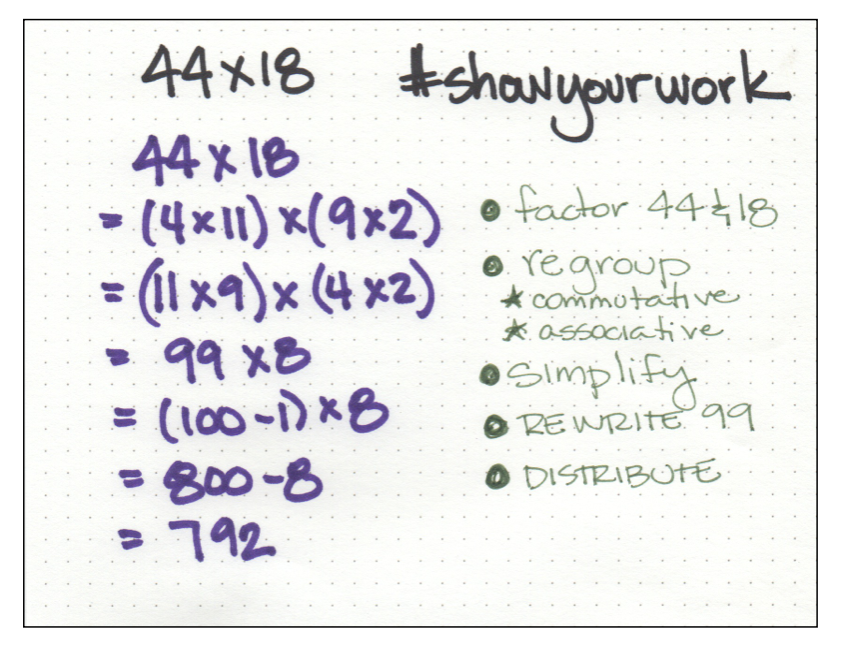 44×18 #showyourwork
44×18
= (4×11)×(9×2)
= (11×9)×(4×2)
= 99×8
= (100-1)×8
= 800-8
= 792
• factor 44 & 18
• regroup
★ commutative
★ associative
• Simplify
• REWRITE 99
• DISTRIBUTE